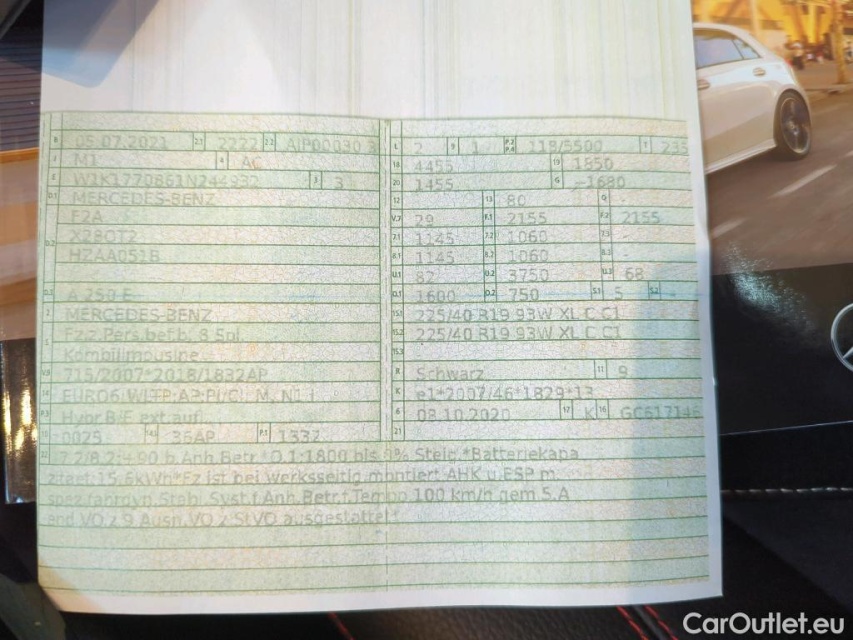 B 05.07.2021 2.1 2222 2.2 AIP00030 3
J M1 4 AC
E W1K1770861N244932 3 3
D.1 MERCEDES-BENZ
F2A
D.2 X2B0T2
HZAA051B
D.3 A 250 E
2 MERCEDES-BENZ
5 Fz.z.Pers.bef.b. 8 Spl
Kombilimousine
V.9 715/2007*2018/1832AP
14 EURO6;WLTP;AP;PI/CI; M, N1 I
P.3 Hybr.B/E ext.aufl
10 0025 14.1 36AP P.1 1332
L 2 9 1 P.2 P.4 118/5500 T 235
18 4455 19 1850
20 1455 G -1680
12 13 80 Q
V.7 29 F.1 2155 F.2 2155
7.1 1145 7.2 1060 7.3
8.1 1145 8.2 1060 8.3
U.1 82 U.2 3750 U.3 68
O.1 1600 O.2 750 S.1 5 S.2
15.1 225/40 R19 93W XL C C1
15.2 225/40 R19 93W XL C C1
15.3
R Schwarz 11 9
K e1*2007/46*1829*13
6 08.10.2020 17 K 16 GC617146
21
22 *7.2/8.2:+90 b.Anh.Betr.*O.1:1800 bis 8% Steig.*Batteriekapa
zitaet:15.6kWh*Fz ist bei werksseitig montiert.AHK u.ESP m.
spez.fahrdyn.Stabi.Syst.f.Anh.Betr.f.Tempo 100 km/h gem.5.A
end.VO.z.9.Ausn.VO.z.StVO ausgestattet*
CarOutlet.eu